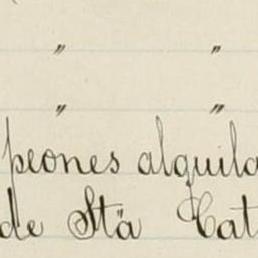 " "
" "
peones alquila
de Stā Cat